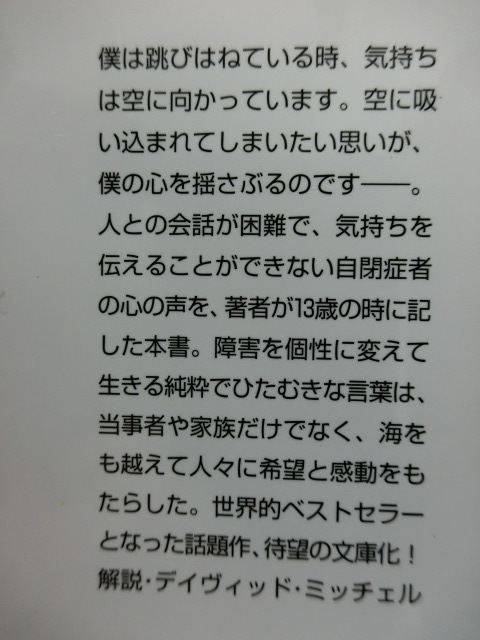 僕は跳びはねている時、気持ち
は空に向かっています。空に吸
い込まれてしまいたい思いが、
僕の心を揺さぶるのです――。
人との会話が困難で、気持ちを
伝えることができない自閉症者
の心の声を、著者が13歳の時に記
した本書。障害を個性に変えて
生きる純粋でひたむきな言葉は、
当事者や家族だけでなく、海を
も越えて人々に希望と感動をも
たらした。世界的ベストセラー
となった話題作、待望の文庫化！
解説・デイヴィッド・ミッチェル